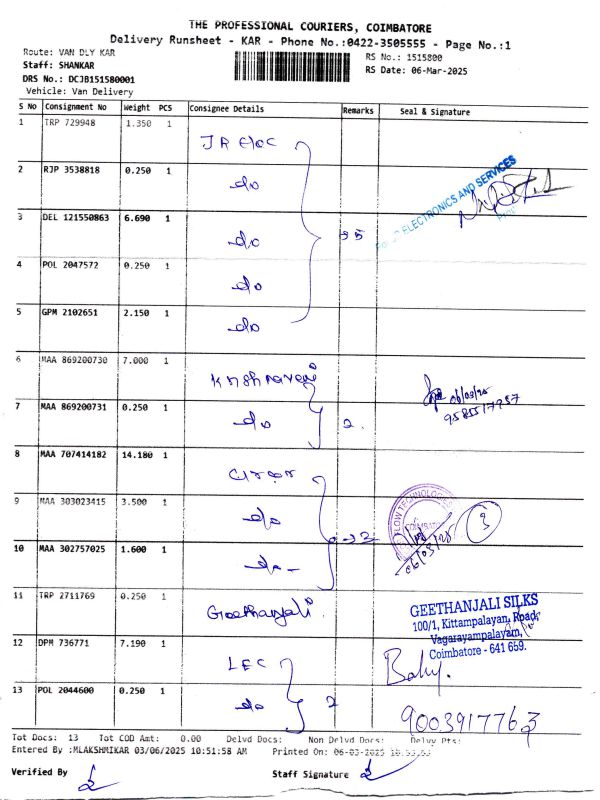 THE PROFESSIONAL COURIERS, COIMBATORE
Delivery Runsheet - KAR - Phone No.:0422-3505555 - Page No.:1
Route: VAN DLY KAR
RS No.: 1515800
Staff: SHANKAR
RS Date: 06-Mar-2025
DRS No.: DCJB151580001
Vehicle: Van Delivery
S No Consignment No Weight PCS Consignee Details Remarks Seal & Signature
1 TRP 729948 1.350 1
2 RJP 3538818 0.250 1 do
3 DEL 121550863 6.690 1 do
ELECTRONICS AND SERVICES
4 POL 2047572 0.250 1 do
5 GPM 2102651 2.150 1 do
6 MAA 869200730 7.000 1 Krishnaveni
06/03/25
7 MAA 869200731 0.250 1 do 2
8 MAA 707414182 14.180 1
9 MAA 303023415 3.500 1 do
FLOW TECHNOLOGIES
COIMBATORE
3
06/03/25
10 MAA 302757025 1.600 1 do
11 TRP 2711769 0.250 1 Geethanjali
GEETHANJALI SILKS
100/1, Kittampalayan, Road,
Vagarayampalayam,
Coimbatore - 641 659.
12 DPM 736771 7.190 1 LEC
13 POL 2044600 0.250 1 do 2
9003917763
Tot Docs: 13 Tot COD Amt: 0.00 Delvd Docs: Non Delvd Docs: Delvy Pts:
Entered By :MLAKSHMIKAR 03/06/2025 10:51:58 AM Printed On: 06-03-2025
Verified By
Staff Signature